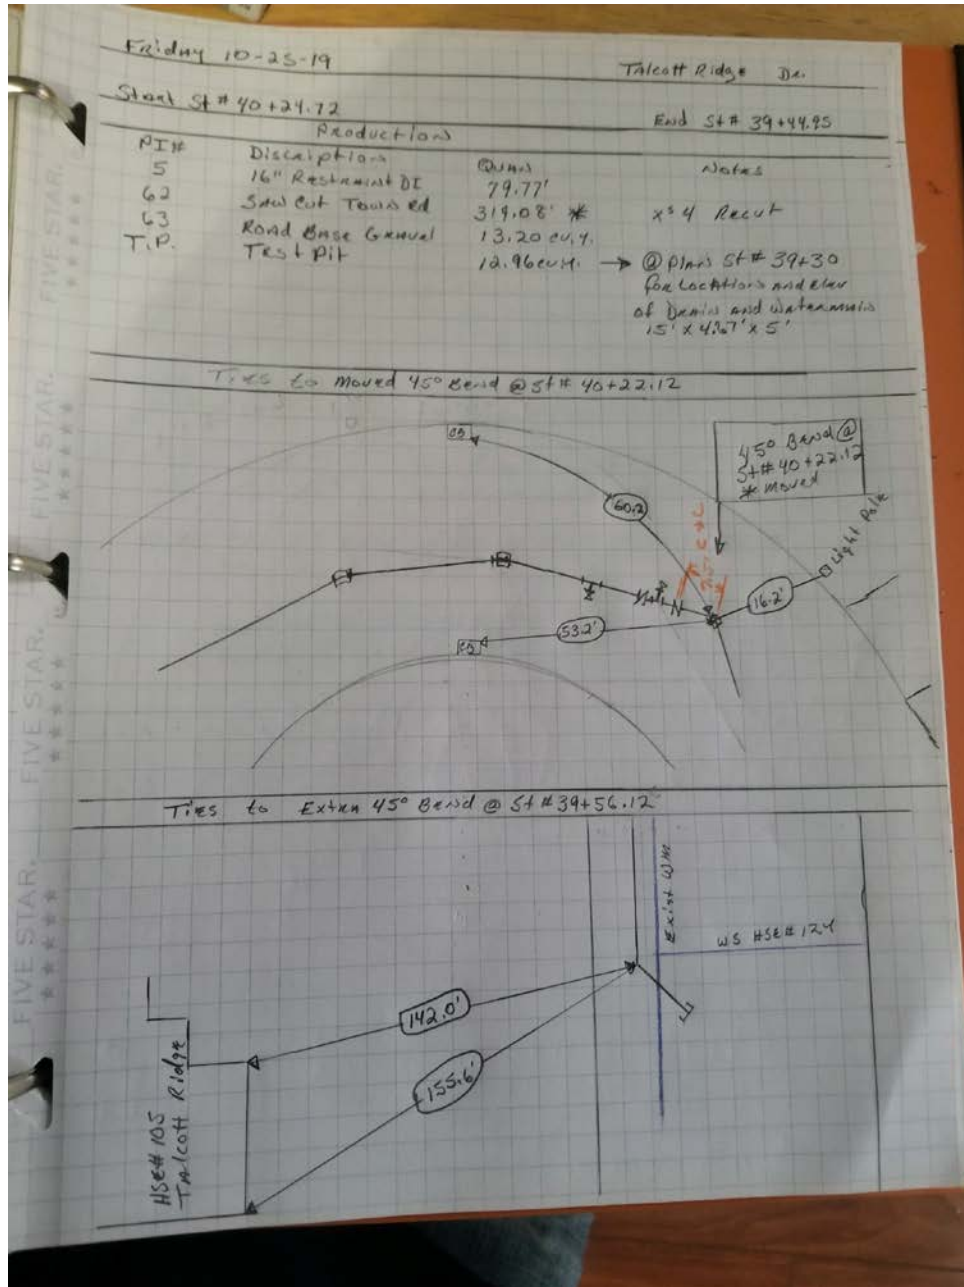 Friday 10-25-19
Talcott Ridge Dr.
Start St# 40+24.72
End St# 39+44.95
Production
PI# Discription Quan Notes
5 16" Restraint DI 79.77'
62 Saw Cut Town Rd 319.08' * x's 4 Recut
63 Road Base Gravel 13.20 cu.y.
T.P. Test Pit 12.96 cu.y. → @ Plan's St# 39+30
for Location and elev
of Drain and watermain
15' x 4.67' x 5'
Ties to Moved 45° Bend @ St# 40+22.12
CB
45° Bend @
St# 40+22.12
* Moved
60.2
Light Pole
16.2'
53.2'
CB
Ties to Extra 45° Bend @ St# 39+56.12
Exist WM
WS HSE# 124
142.0'
155.6'
HSE# 105
Talcott Ridge
FIVE STAR.
FIVE STAR.
FIVE STAR.
FIVE STAR.